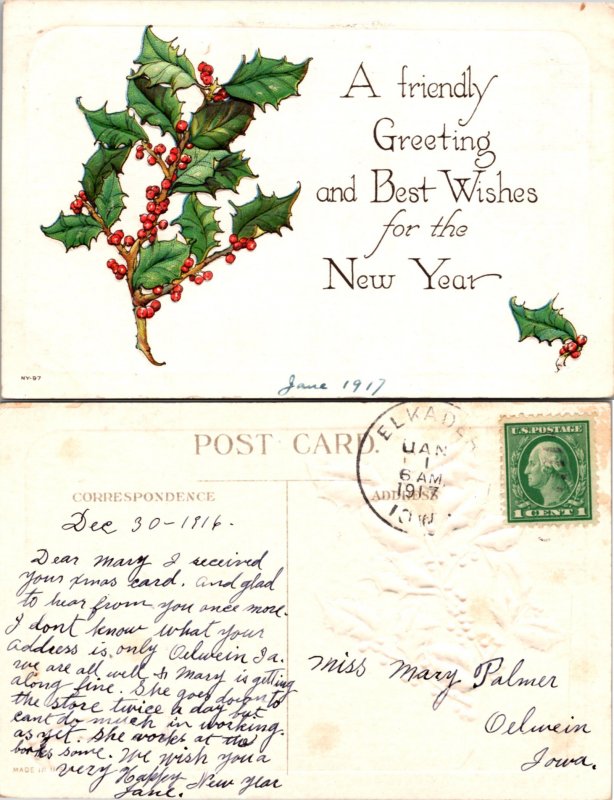 A friendly
Greeting
and Best Wishes
for the
New Year
NY-97
Jane 1917
POST CARD.
CORRESPONDENCE
ADDRESS
ELKADER
JAN
1
6 AM
1917
IOWA
U.S. POSTAGE
1 CENT 1
Dec 30-1916.
Dear Mary I received
your xmas card. and glad
to hear from you once more.
I dont know what your
address is only Oelwein Ia.
we are all well & Mary is getting
along fine. She goes down to
the store twice a day but
cant do much in working.
as yet. She works at the
books some. We wish you a
very Happy New Year
Jane.
MADE IN
Miss Mary Palmer
Oelwein
Iowa.